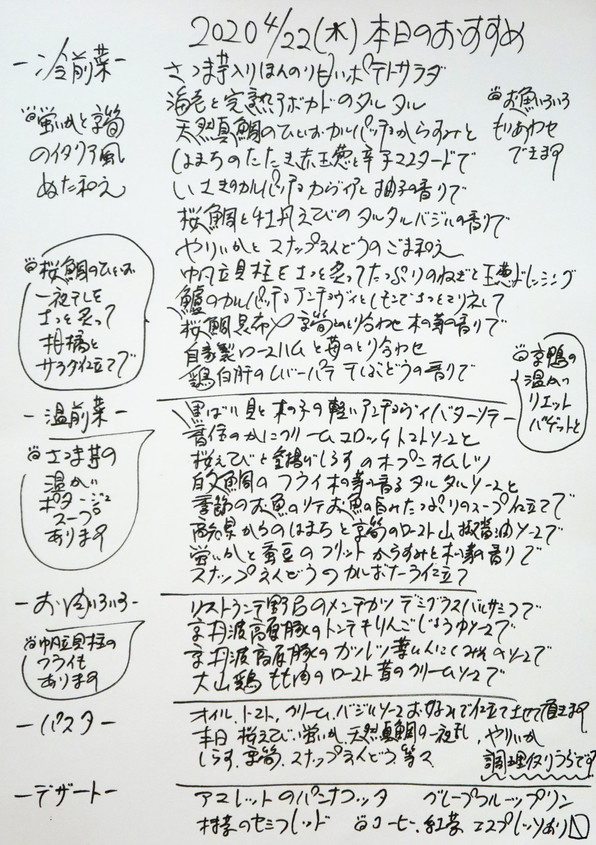 2020 4/22(水) 本日のおすすめ
ー冷前菜ー
さつま芋入りほんのり甘いポテトサラダ
海老と完熟アボカドのタルタル
天然真鯛のひとしおカルパッチョからすみと
はまちのたたき赤玉葱と辛子マスタードで
いさきのカルパッチョ カヴィアと柚子の香りで
桜鯛と牡丹えびのタルタルバジルの香りで
やりいかとスナップえんどうのごま和え
帆立貝柱をさっと炙ってたっぷりのねぎと玉葱ドレッシング
鱸のカルパッチョ アンチョヴィとレモンでさっとマリネして
桜鯛昆布〆京筍の取り合わせ 木の芽の香りで
自家製ロースハムと苺のとり合わせ
鶏白肝のレバーパテ 干しぶどうの香りで
蛍いかと京筍
のイタリア風
ぬた和え
お魚いろいろ
もりあわせ
できます
桜鯛のひとしお
一夜干しを
さっと炙って
柑橘と
サラダ仕立てで
京鴨の
温かい
リエット
バゲットと
ー温前菜ー
黒ばい貝と木の子の軽いアンチョヴィバターソテー
かにクリームコロッケ トマトソースと
桜えびと釜揚げしらすのオープンオムレツ
白身魚のフライ 木の芽香るタルタルソースと
季節のお魚のソテ お魚の旨みたっぷりのスープ仕立てで
からのはまちと京筍のロースト 山椒醤油ソースで
蛍いかと蚕豆のフリット からすみと木の芽の香りで
スナップえんどうのカルボナーラ仕立て
さつま芋の
温かい
ポタージュ
スープも
あります
ーお肉いろいろー
リストランテ野呂のメンチカツ デミグラスバルサミコで
京丹波高原豚のトンテキりんごしょうゆソースで
京丹波高原豚のカツレツ 葉にんにくみそのソースで
大山鶏もも肉のロースト 茸のクリームソースで
帆立貝柱の
フライも
あります
ーパスター
オイル、トマト、クリーム、バジルソース お好みで仕立てさせて頂きます
本日 桜えび、蛍いか、天然真鯛の一夜干し、やりいか
しらす、京筍、スナップえんどう等々
調理体りうらです
ーデザートー
アマレットのパンナコッタ グレープフルーツプリン
抹茶のセミフレッド コーヒー、紅茶 エスプレッソあり